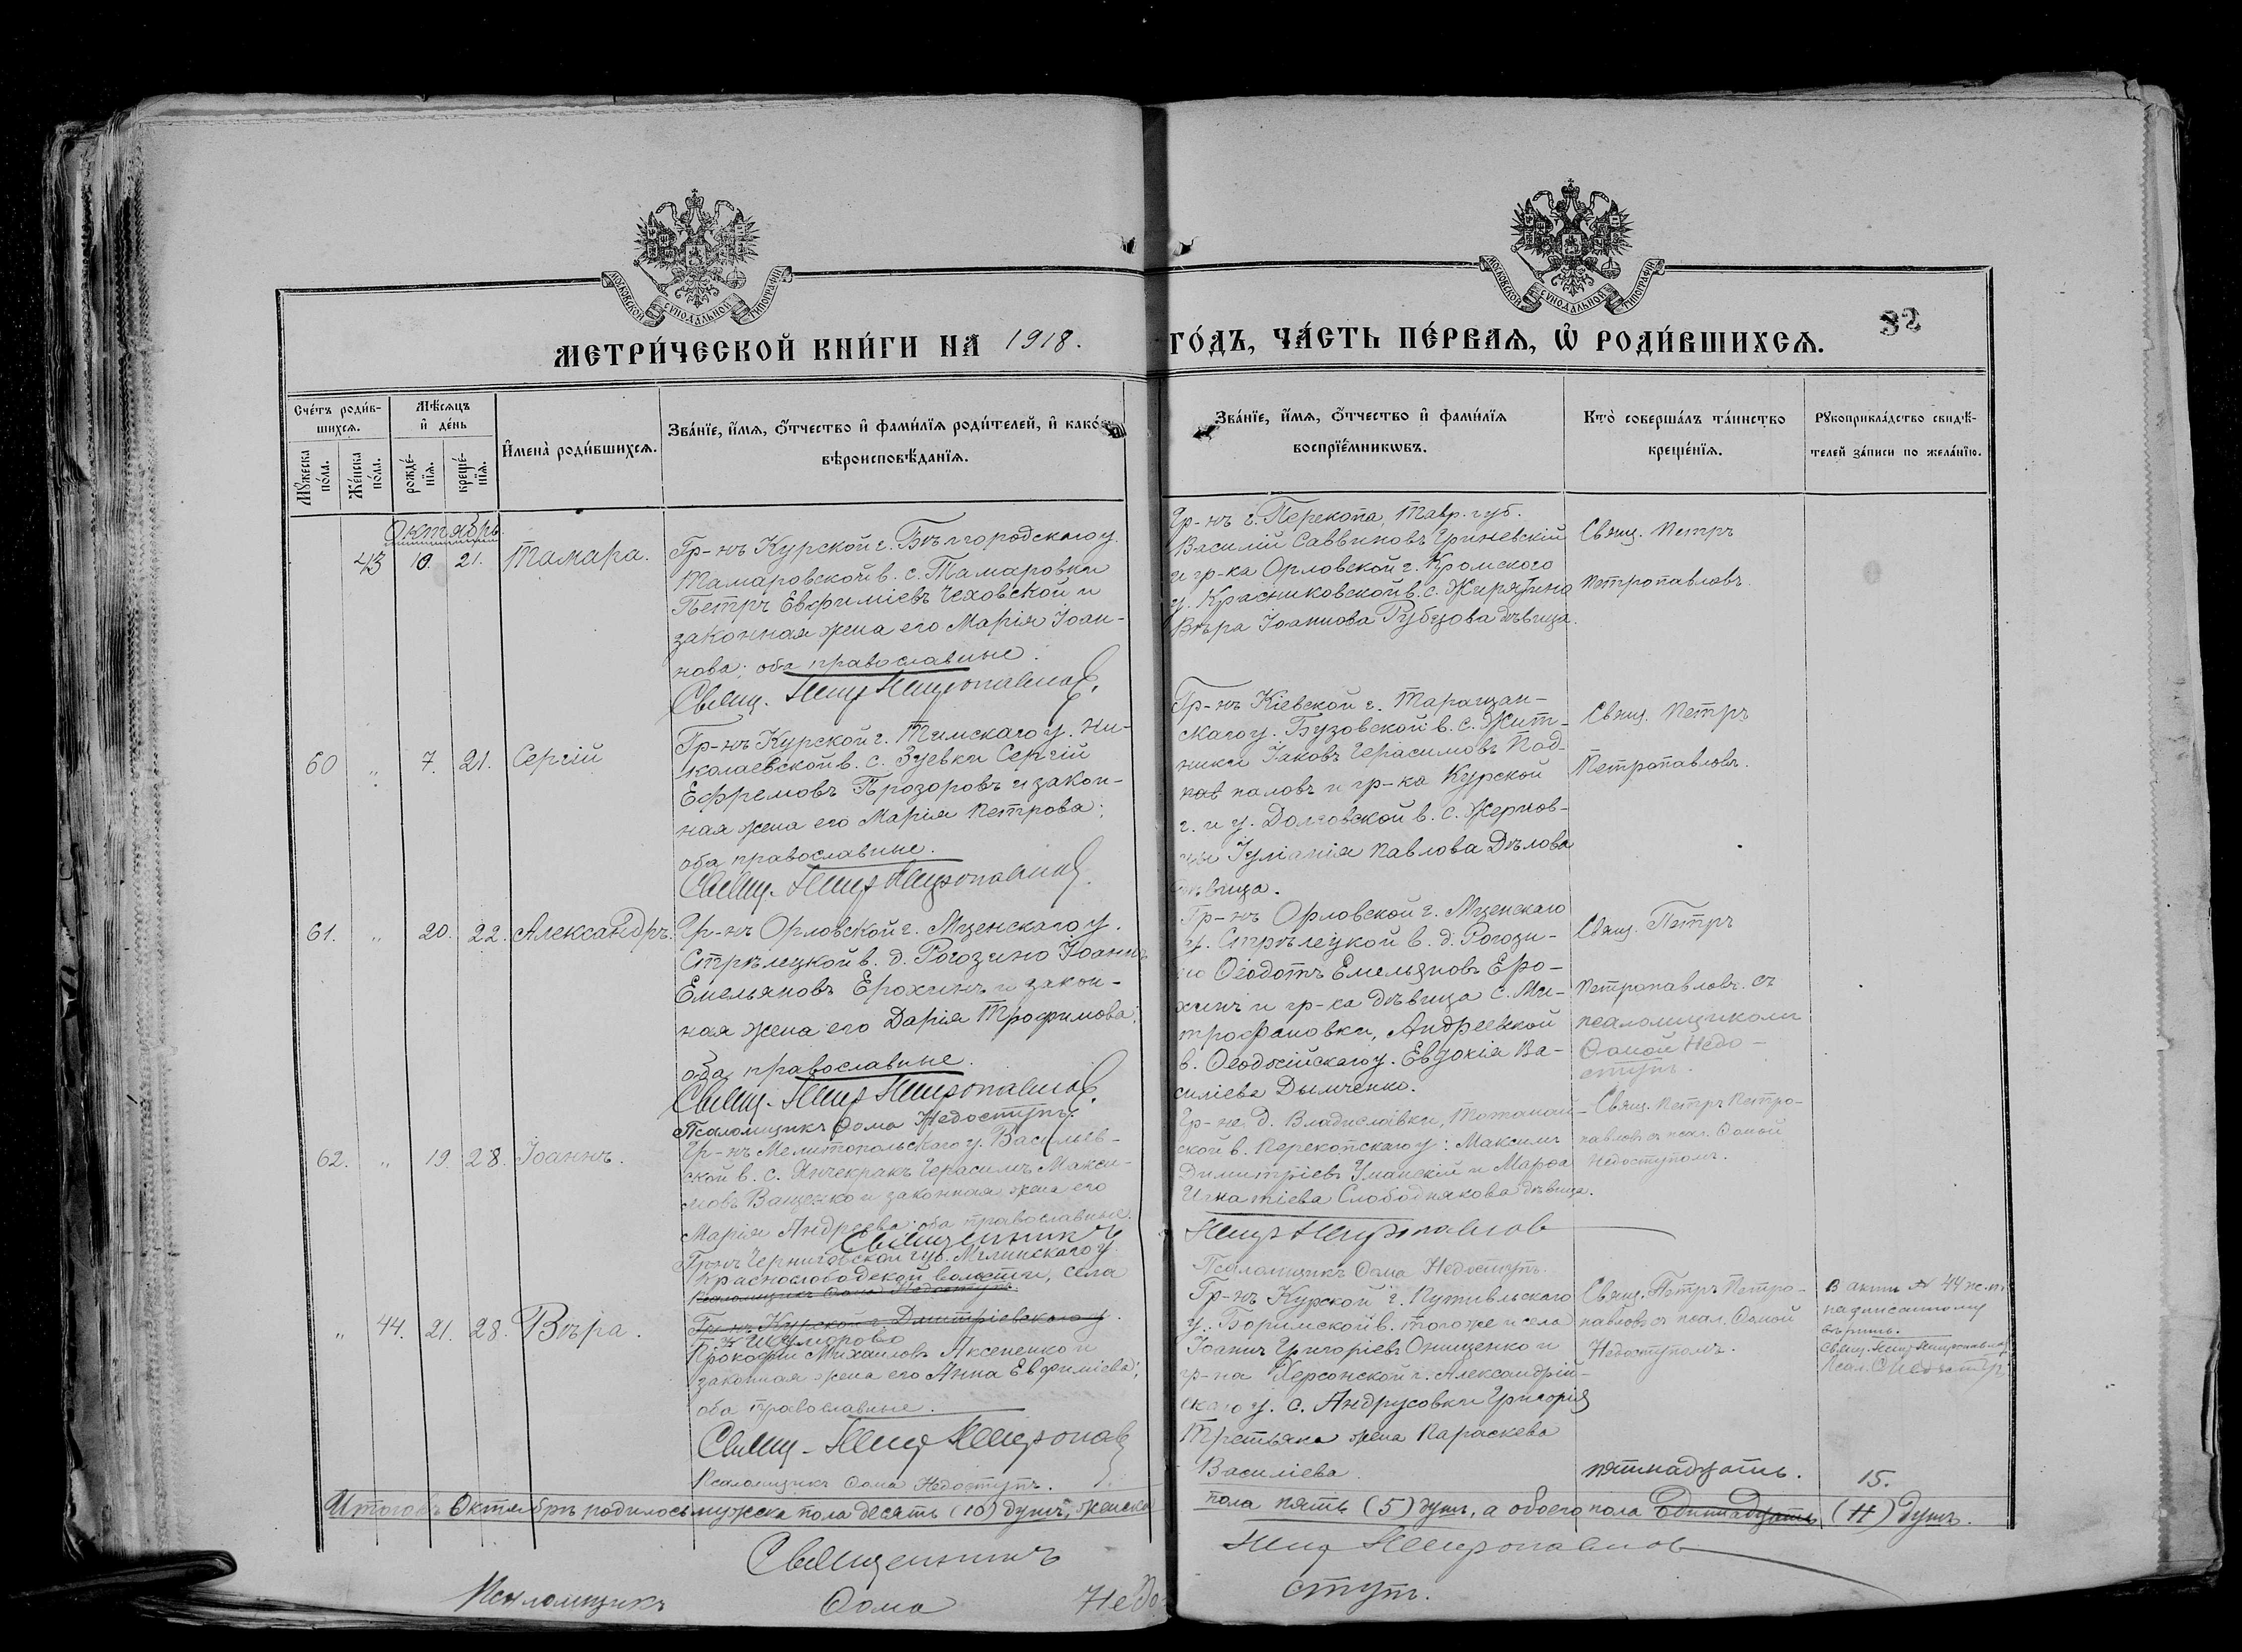 МОСКОВСКОЙ СѴНОДАЛЬНОЙ ТИПОГРАФІИ
МОСКОВСКОЙ СѴНОДАЛЬНОЙ ТИПОГРАФІИ
32
МЕТРИ́ЧЕСКОЙ КНИ́ГИ НА 1918. ГО́ДЪ, ЧА́СТЬ ПЕ́РВАѦ, Ѽ РОДИ́ВШИХСѦ.
Сче́тъ роди́в-
шихсѧ.
Мꙋ́жеска по́ла.
Же́нска по́ла.
Мѣ́сѧцъ
и҆ де́нь
рожде́-
нїѧ.
креще́-
нїѧ.
И҆мена̀ роди́вшихсѧ.
Зва́нїе, и҆́мѧ, ѻ҆́тчество и҆ фами́лїѧ роди́телей, и҆ како́гѡ
вѣроисповѣ́данїѧ.
Зва́нїе, и҆́мѧ, ѻ҆́тчество и҆ фами́лїѧ
воспрїе́мникѡвъ.
Кто̀ соверша́лъ та́инство
креще́нїѧ.
Рꙋкоприкла́дство свидѣ́-
телей за́писи по жела́нїю.
Октябрь.
43 10. 21. Тамара.
Гр-нъ Курской г. Бѣлгородскаго у.
Тамаровской в. с. Тамаровки
Петръ Евфиміевъ Чеховской и
законная жена его Марія Іоан-
нова; оба православные.
Свящ. Петр Петропавлов.
Гр-нъ г. Перекопа, Тавр. губ.
Василій Саввиновъ Гриневскій
и гр-ка Орловской г. Кромского
у. Красниковской в. с. Жирятино
Вѣра Іоаннова Рубцова дѣвица.
Свящ. Петръ
Петропавловъ.
60 „ 7. 21. Сергій
Гр-нъ Курской г. Тимскаго у. Ни-
колаевской в. с. Зуевки Сергій
Ефремовъ Прозоровъ и закон-
ная жена его Марія Петрова;
оба православные.
Свящ. Петр Петропавлов.
Гр-нъ Кіевской г. Таращан-
скаго у. Бузовской в. с. Жит-
ники Іаковъ Герасимовъ Под-
паловъ и гр-ка Курской
г. и у. Долговской в. с. Жернов-
Павлова Дѣлова
дѣвица.
Свящ. Петръ
Петропавловъ.
61. „ 20. 22. Александръ.
Гр-нъ Орловской г. Мценскаго у.
Стрѣлецкой в. д. Рогозино Іоаннъ
Емельяновъ Ерохинъ и закон-
ная жена его Дарія Трофимова;
оба православные.
Свящ. Петр Петропавлов.
Псаломщикъ Ѳома Недоступъ.
Гр-нъ Орловской г. Мценскаго
у. Стрѣлецкой в. д. Рогози-
но Ѳеодотъ Емельяновъ Еро-
хинъ и гр-ка дѣвица с. Ми-
трофановки, Андреевской
в. Ѳеодосійскаго у. Евдокія Ва-
силіева Дымченко.
Свящ. Петръ
Петропавловъ съ
псаломщикомъ
Ѳомой Недо-
ступ.
62. „ 19. 28. Іоаннъ.
Гр-нъ Мелитопольскаго у. Васильев-
ской в. с. Янчекракъ Герасимъ Макси-
мовъ Ващенко и законная жена его
Марія Андреева; оба православные.
Священникъ
Гр-не д. Владиславки,
ской в. Перекопскаго у: Максимъ
Димитріевъ Уманскій и Марѳа
Игнатіева Слободнякова дѣвица.
Петр Петропавлов
Псаломщикъ Ѳома Недоступъ.
Свящ. Петръ Петро-
павловъ съ псал. Ѳомой
Недоступомъ.
„ 44. 21. 28. Вѣра.
Гр-нъ Черниговской губ. Мглинскаго у.
Краснослободской волости, села
Псаломщикъ Ѳома Недоступъ.
Гр-нъ Курской г. Дмитріевскаго у.
Шуморово
Прокофій Михаиловъ Аксененко и
законная жена его Анна Евфиміева;
оба православные.
Свящ. Петр Петропав
Псаломщикъ Ѳома Недоступъ.
Гр-нъ Курской г. Путивльскаго
у. Боримской в. того же и села
Іоаннъ Григоріевъ Онищенко и
гр-на Херсонской г. Александрій-
скаго у. с. Андрусовки Григорія
Третьяка жена Параскева
Василіева.
Свящ. Петръ Петро-
павловъ съ псал. Ѳомой
Недоступомъ.
В актѣ № 44 ж. п.
надписанному
вѣрить.
Свящ. Петр Петропавлов
Псал. Ѳ Недоступъ
пятнадцать. 15.
Итого въ Октябрѣ родилось мужска пола десять (10) душъ, женска пола пять (5) душъ, а обоего пола одиннадцать (11) душъ.
Священникъ Петр Петропавлов
Псаломщикъ Ѳома Недоступъ.